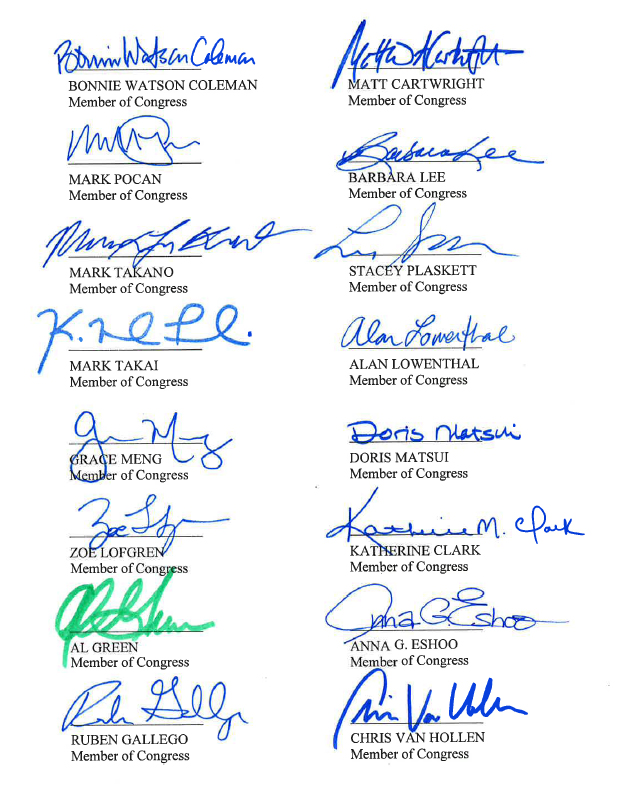 Bonnie Watson Coleman
BONNIE WATSON COLEMAN
Member of Congress
Matt Cartwright
MATT CARTWRIGHT
Member of Congress
MARK POCAN
Member of Congress
Barbara Lee
BARBARA LEE
Member of Congress
MARK TAKANO
Member of Congress
STACEY PLASKETT
Member of Congress
MARK TAKAI
Member of Congress
Alan Lowenthal
ALAN LOWENTHAL
Member of Congress
GRACE MENG
Member of Congress
Doris Matsui
DORIS MATSUI
Member of Congress
ZOE LOFGREN
Member of Congress
Katherine M. Clark
KATHERINE CLARK
Member of Congress
Al Green
AL GREEN
Member of Congress
Anna G. Eshoo
ANNA G. ESHOO
Member of Congress
RUBEN GALLEGO
Member of Congress
Chris Van Hollen
CHRIS VAN HOLLEN
Member of Congress